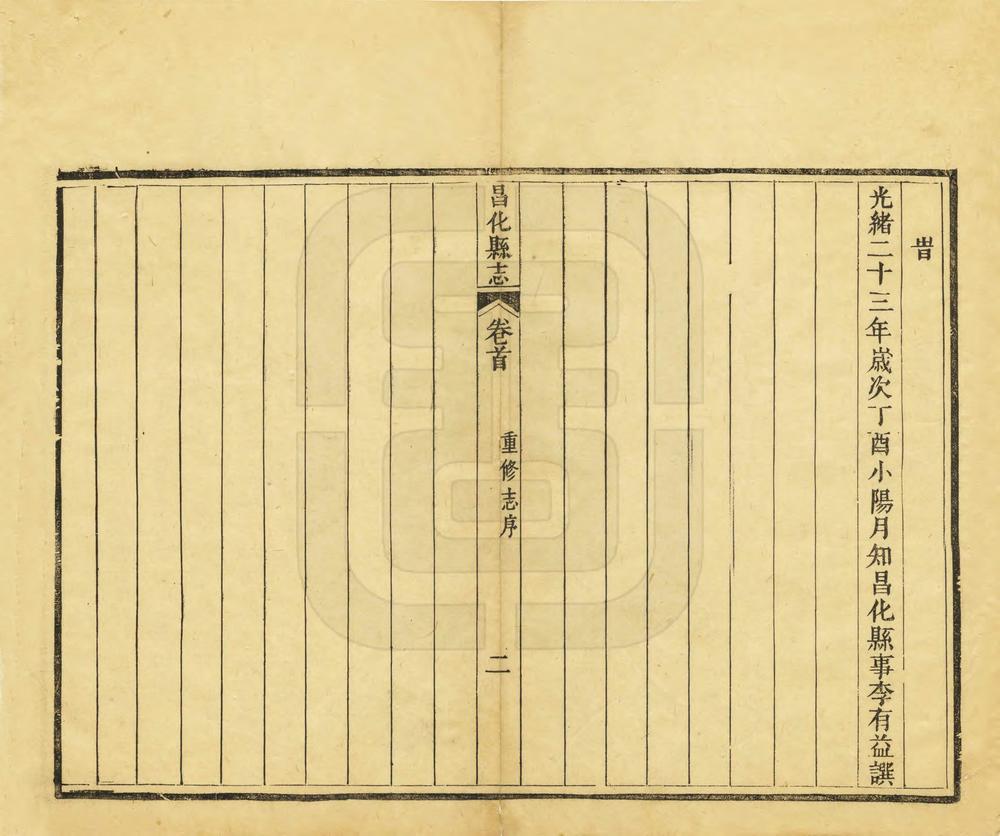 旹
光緒二十三年嵗次丁酉小陽月知昌化縣事李有益譔
昌化縣志
卷首
重修志序
二